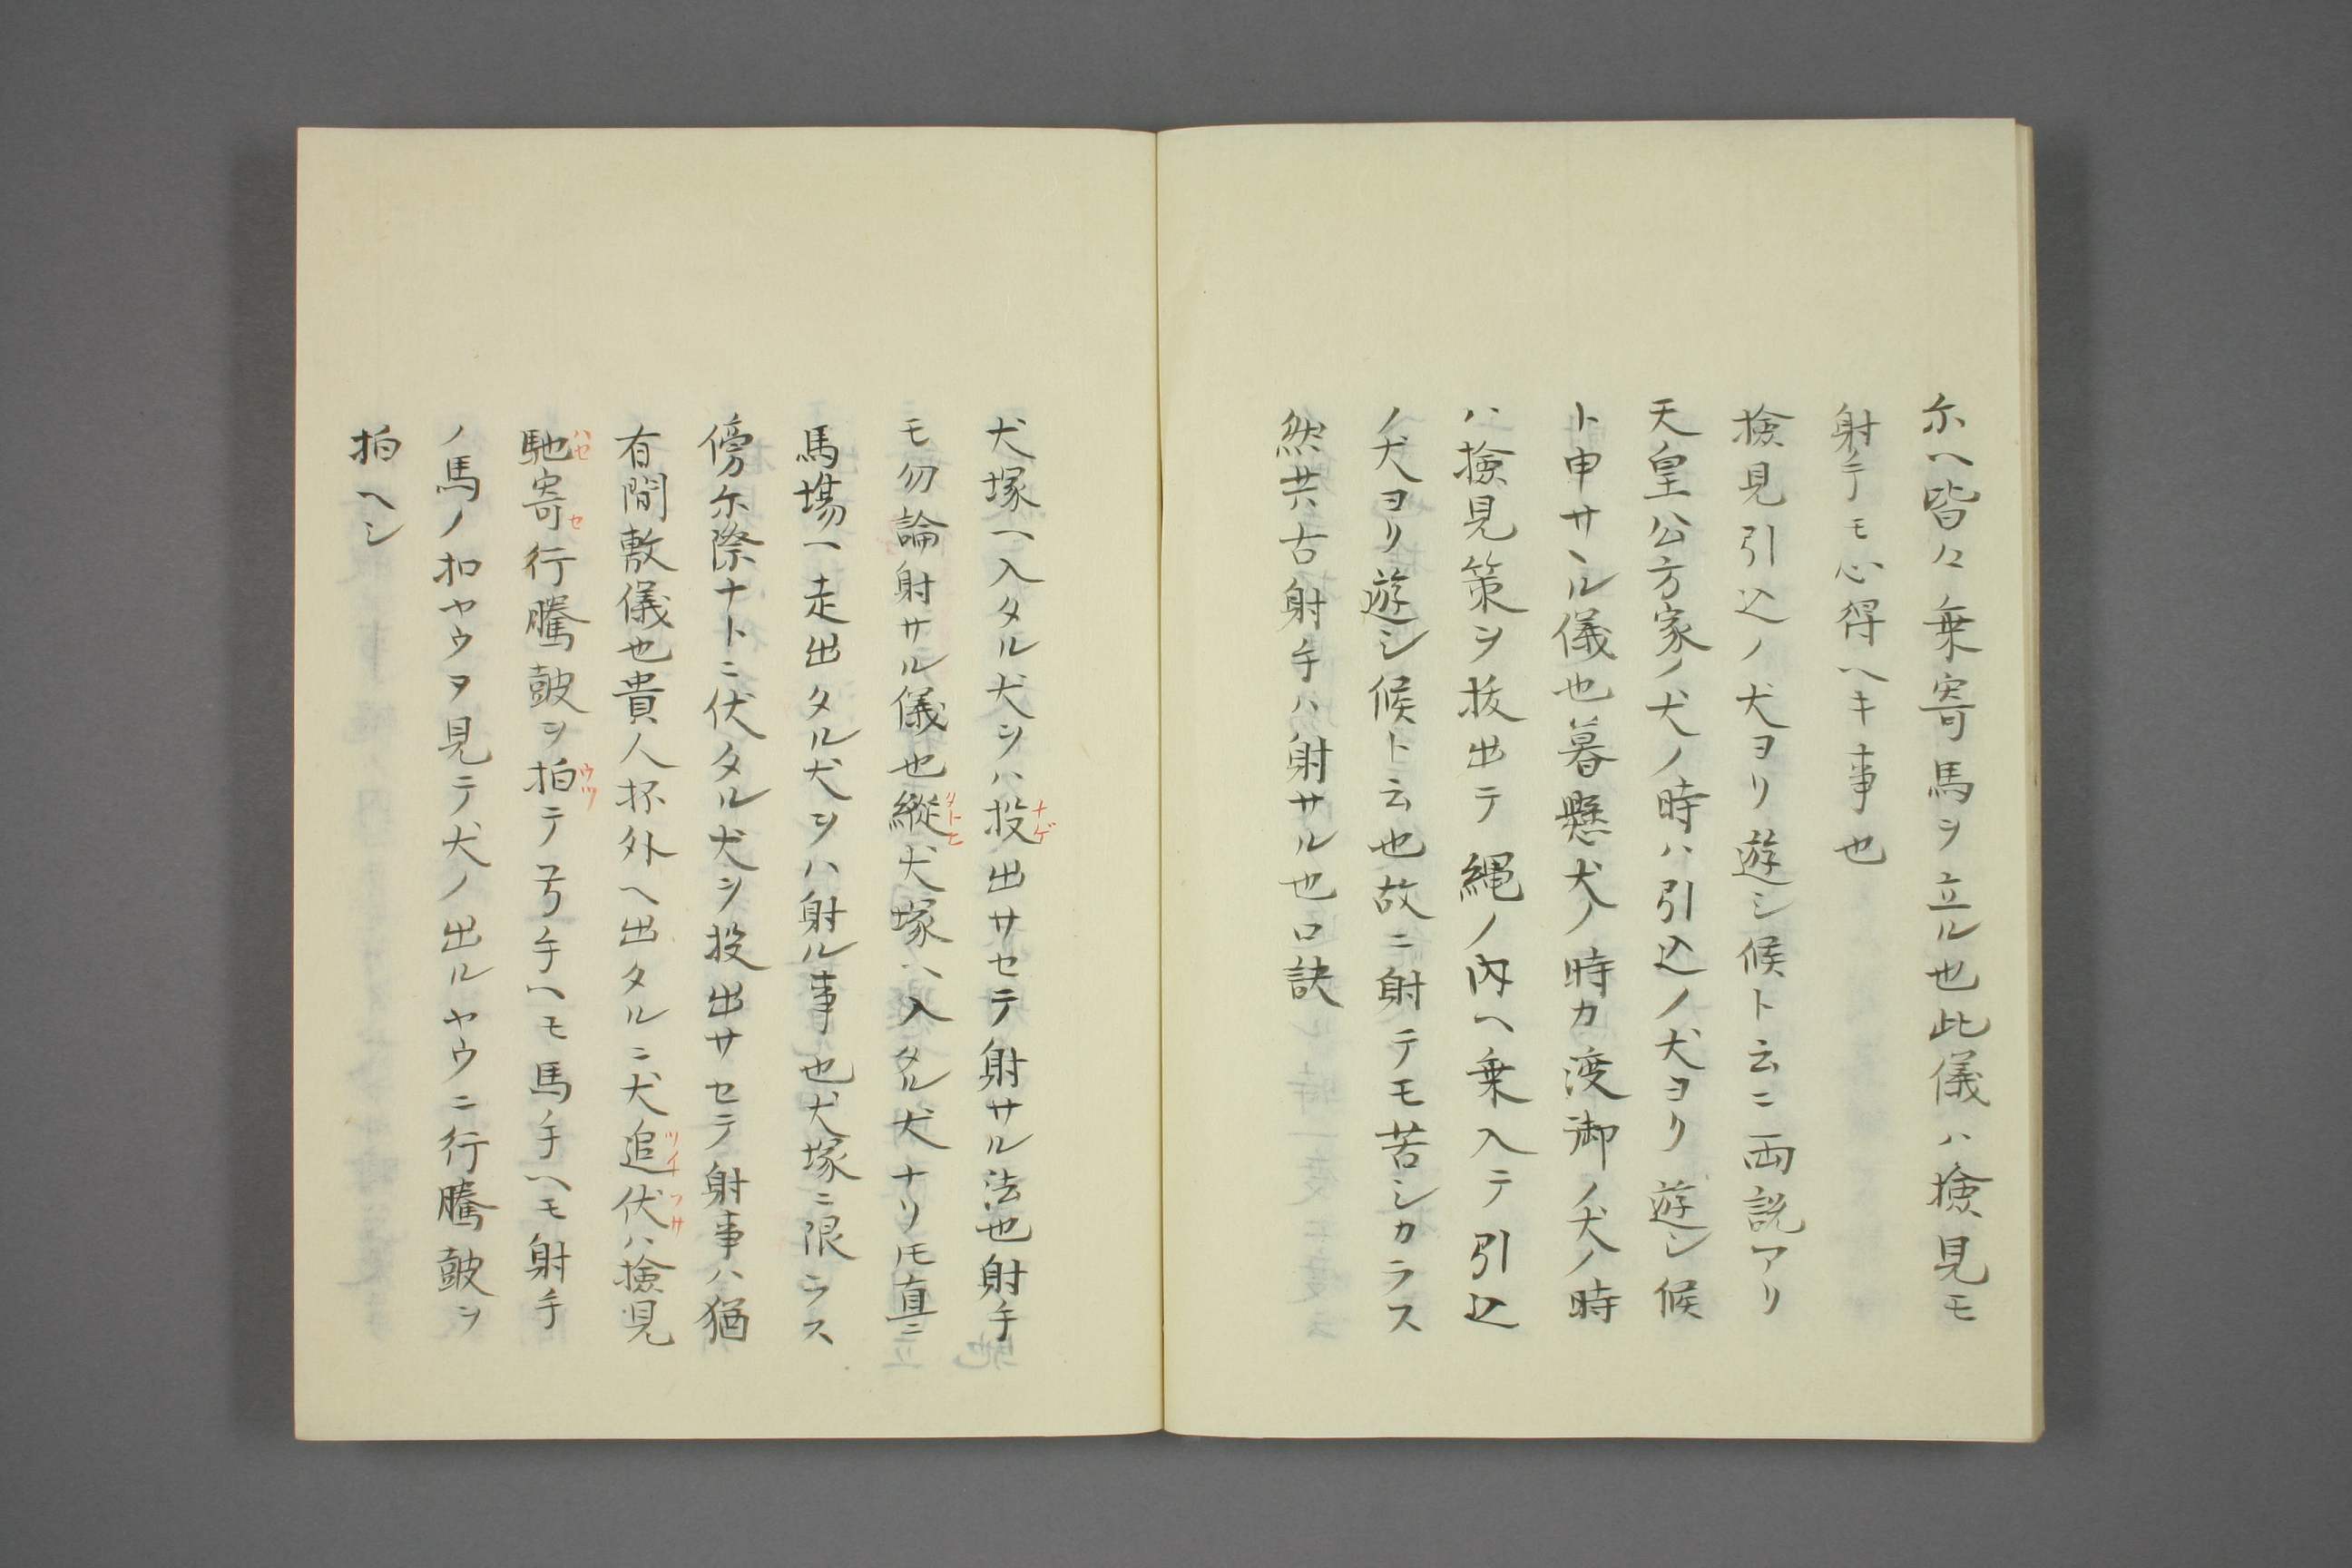 尓ヘ皆々乗寄馬ヲ立ル也此儀ハ撿見モ
射テモ心得ヘキ事也
撿見引込ノ犬ヨリ遊シ候ト云ニ両説アリ
天皇公方家ノ犬ノ時ハ引込ノ犬ヨリ遊シ候
ト申サヽル儀也暮懸犬ノ時カ渡御ノ犬ノ時
ハ撿見策ヲ抜出テ縄ノ内ヘ乗入テ引込
ノ犬ヨリ遊シ候ト云也故ニ射テモ苦シカラス
然共古射手ハ射サル也口訣
犬塚ヘ入タル犬ヲハ投出サセテ射サル法也射手
ナゲ
モ勿論射サル儀也縱犬塚ヘ入タル犬ナリ𪜈直ニ
タトヒ
馬場ヘ走出タル犬ヲハ射ル事也犬塚ニ限ラス
傍尓際ナトニ伏タル犬ヲ投出サセテ射事ハ猶
有間敷儀也貴人抔外ヘ出タルニ犬追伏ハ撿見
ツイ フサ
馳寄行騰皷ヲ拍テ弓手ヘモ馬手ヘモ射手
ハセ セ ウツ
ノ馬ノ扣ヤウヲ見テ犬ノ出ルヤウニ行騰皷ヲ
拍ヘシ